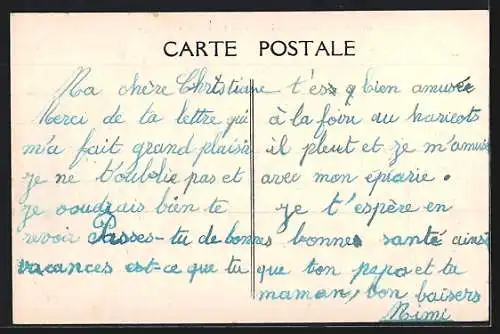 CARTE POSTALE
Ma chère Christiane
Merci de ta lettre qui
m'a fait grand plaisir
je ne t'oublie pas et
je voudrais bien te
revoir Passes-tu de bonnes
vacances est-ce que tu
t'es bien amusée
à la foire au haricots
il pleut et je m'amuse
avec mon épicerie.
je t'espère en
bonne santé ainsi
que ton papa et ta
maman, bon baisers
Mimi